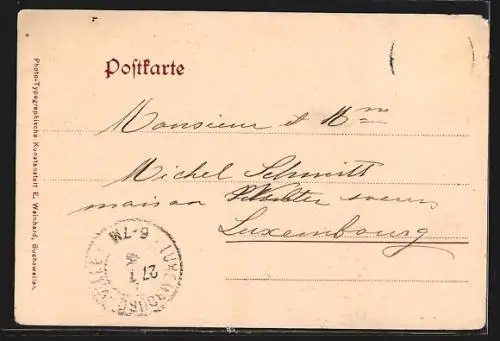 Postkarte
Monsieur et Mme
Michel Schmitt
maison soeurs
Luxembourg
LUXEMBOURG VILLE
27 1
6-7N
Photo-Typographische Kunstanstalt E. Weinhard, Buchsweiler.